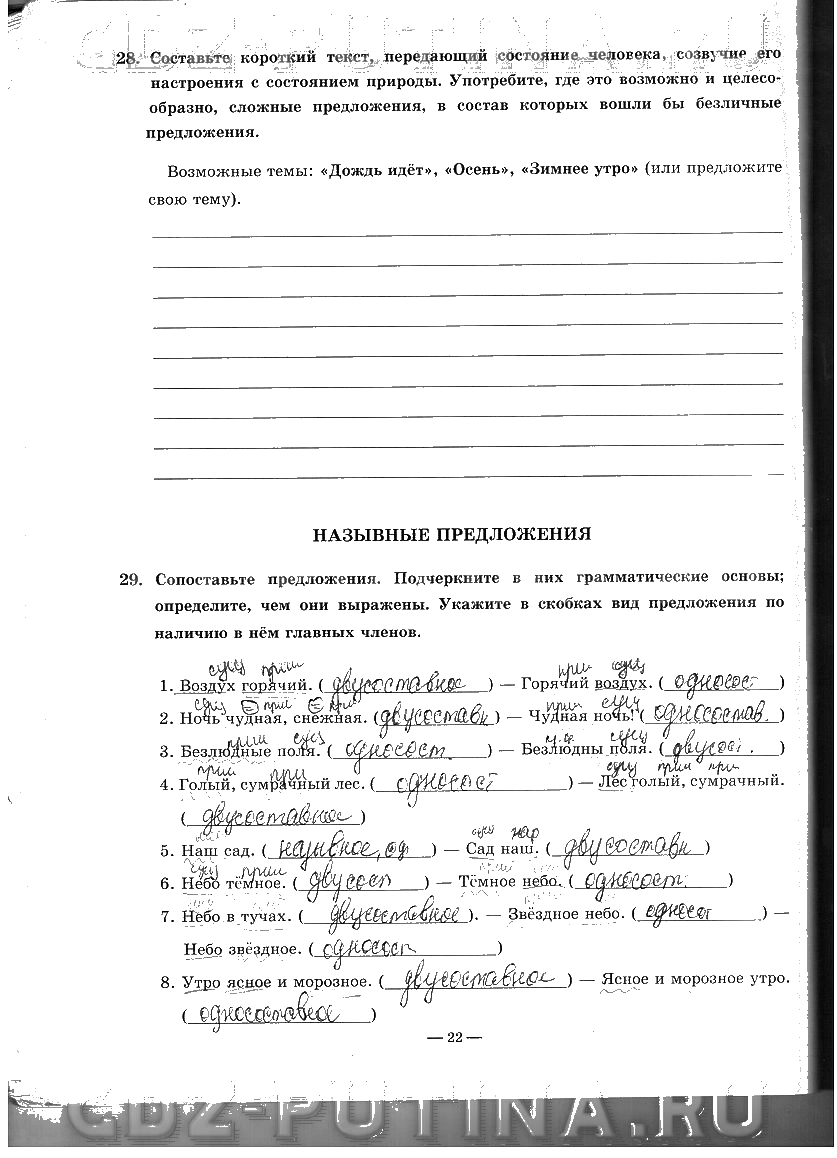 GDZ-PUTINA.RU
28. Составьте короткий текст, передающий состояние человека, созвучие его
настроения с состоянием природы. Употребите, где это возможно и целесо-
образно, сложные предложения, в состав которых вошли бы безличные
предложения.
Возможные темы: «Дождь идёт», «Осень», «Зимнее утро» (или предложите
свою тему).
НАЗЫВНЫЕ ПРЕДЛОЖЕНИЯ
29. Сопоставьте предложения. Подчеркните в них грамматические основы;
определите, чем они выражены. Укажите в скобках вид предложения по
наличию в нём главных членов.
сущ прил прил сущ
1. Воздух горячий. (двусоставное) — Горячий воздух. (односост)
сущ прил прил прил сущ
2. Ночь чудная, снежная. (двусоставн) — Чудная ночь! (односостав.)
прил сущ сущ
3. Безлюдные поля. (односост.) — Безлюдны поля. (двусост.)
прил прил сущ прил при
4. Голый, сумрачный лес. (односост) — Лес голый, сумрачный.
(двусоставное)
сущ нар
5. Наш сад. (назывное, од) — Сад наш. (двусоставн)
сущ прил
6. Небо тёмное. (двусост) — Тёмное небо. (односост.)
7. Небо в тучах. (двусоставное). — Звёздное небо. (односот) —
Небо звёздное. (односост)
8. Утро ясное и морозное. (двусоставное) — Ясное и морозное утро.
(односоставное)
— 22 —
GDZ-PUTINA.RU